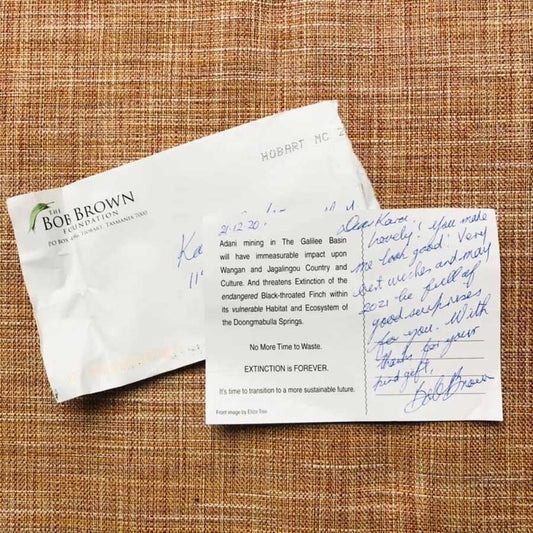 THE
BOB BROWN
FOUNDATION
HOBART, TASMANIA 7000
HOBART MC 2
21-12-20
Adani mining in The Galilee Basin
will have immeasurable impact upon
Wangan and Jagalingou Country and
Culture. And threatens Extinction of the
endangered Black-throated Finch within
its vulnerable Habitat and Ecosystem of
the Doongmabulla Springs.
No More Time to Waste.
EXTINCTION is FOREVER.
It's time to transition to a more sustainable future.
Front image by Eliza Tree.
Dear Kara,
Lovely! You make
me look good! Very
best wishes and may
2021 be full of
good surprises
for you. With
thanks for your
kind gift,
Bob Brown